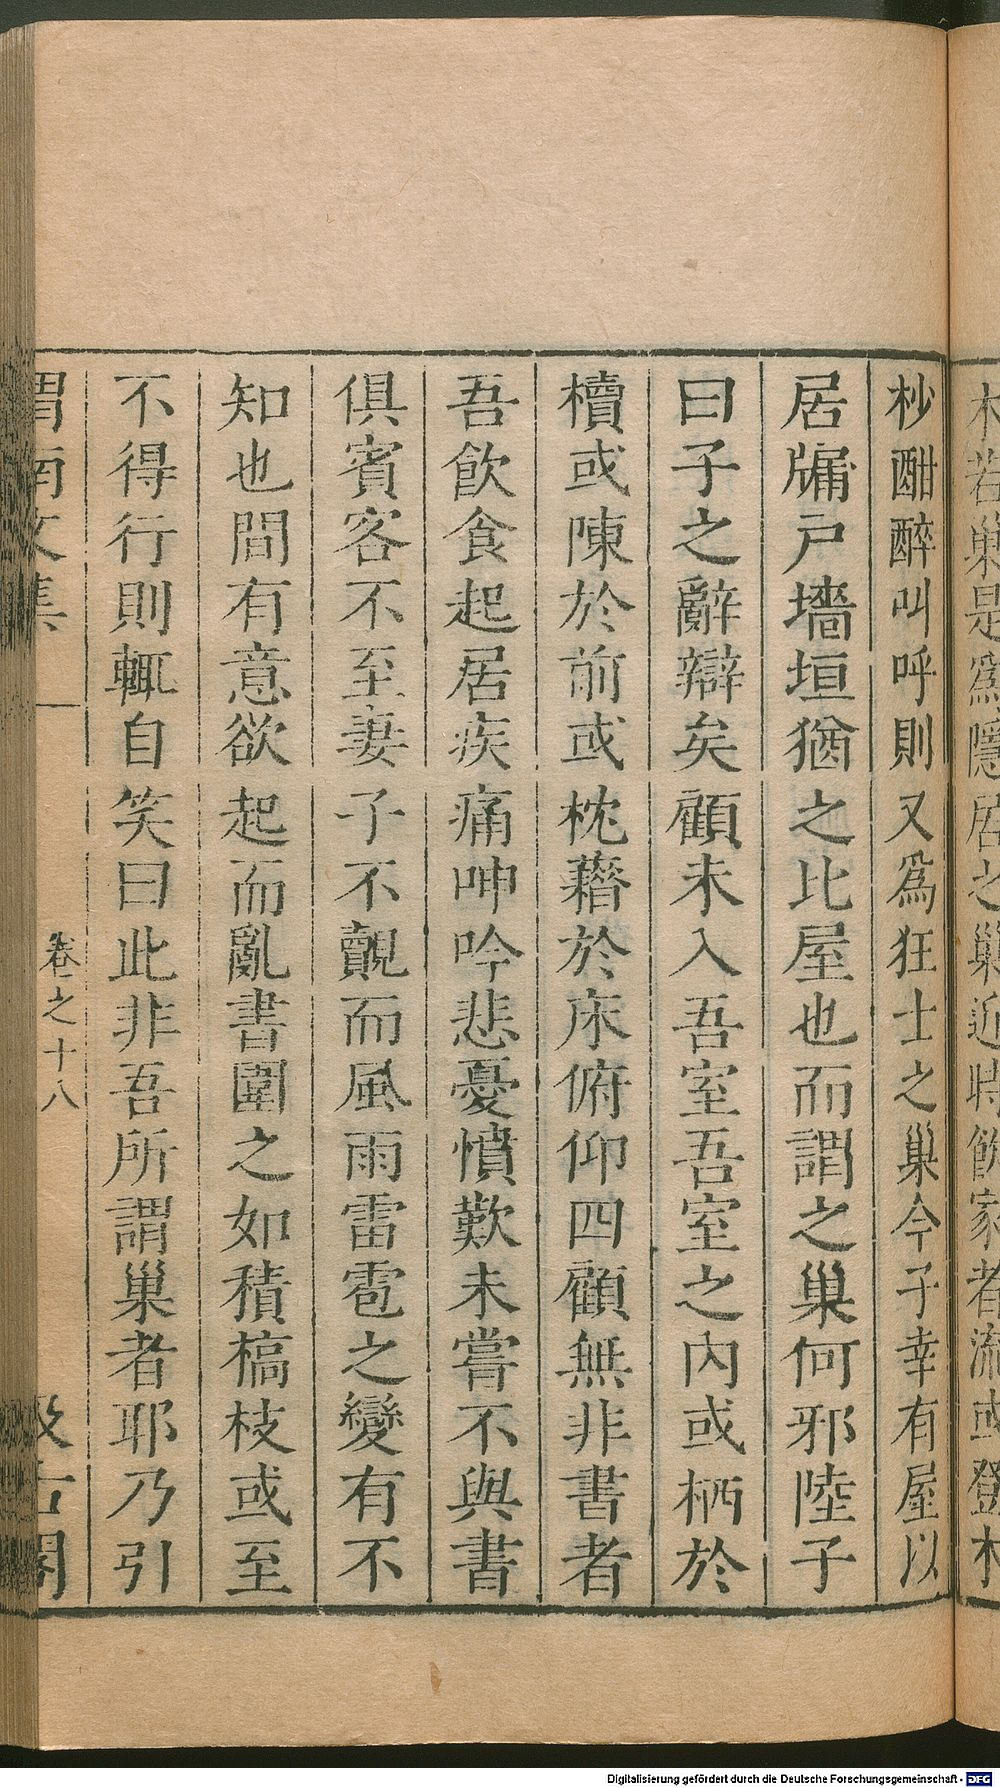 木若巢是為隱居之巢近時飲家者流或登木
杪酣醉叫呼則又爲狂士之巢今子幸有屋以
居牖戶墻垣猶之比屋也而謂之巢何邪陸子
曰子之辭辯矣顧未入吾室吾室之內或栖於
櫝或陳於前或枕藉於床俯仰四顧無非書者
吾飲食起居疾痛呻吟悲憂憤歎未嘗不與書
俱賓客不至妻子不覿而風雨雷雹之變有不
知也間有意欲起而亂書圍之如積槁枝或至
不得行則輒自笑曰此非吾所謂巢者耶乃引
渭南文集
卷之十八
一
汲古閣
Digitalisierung gefördert durch die Deutsche Forschungsgemeinschaft - DFG